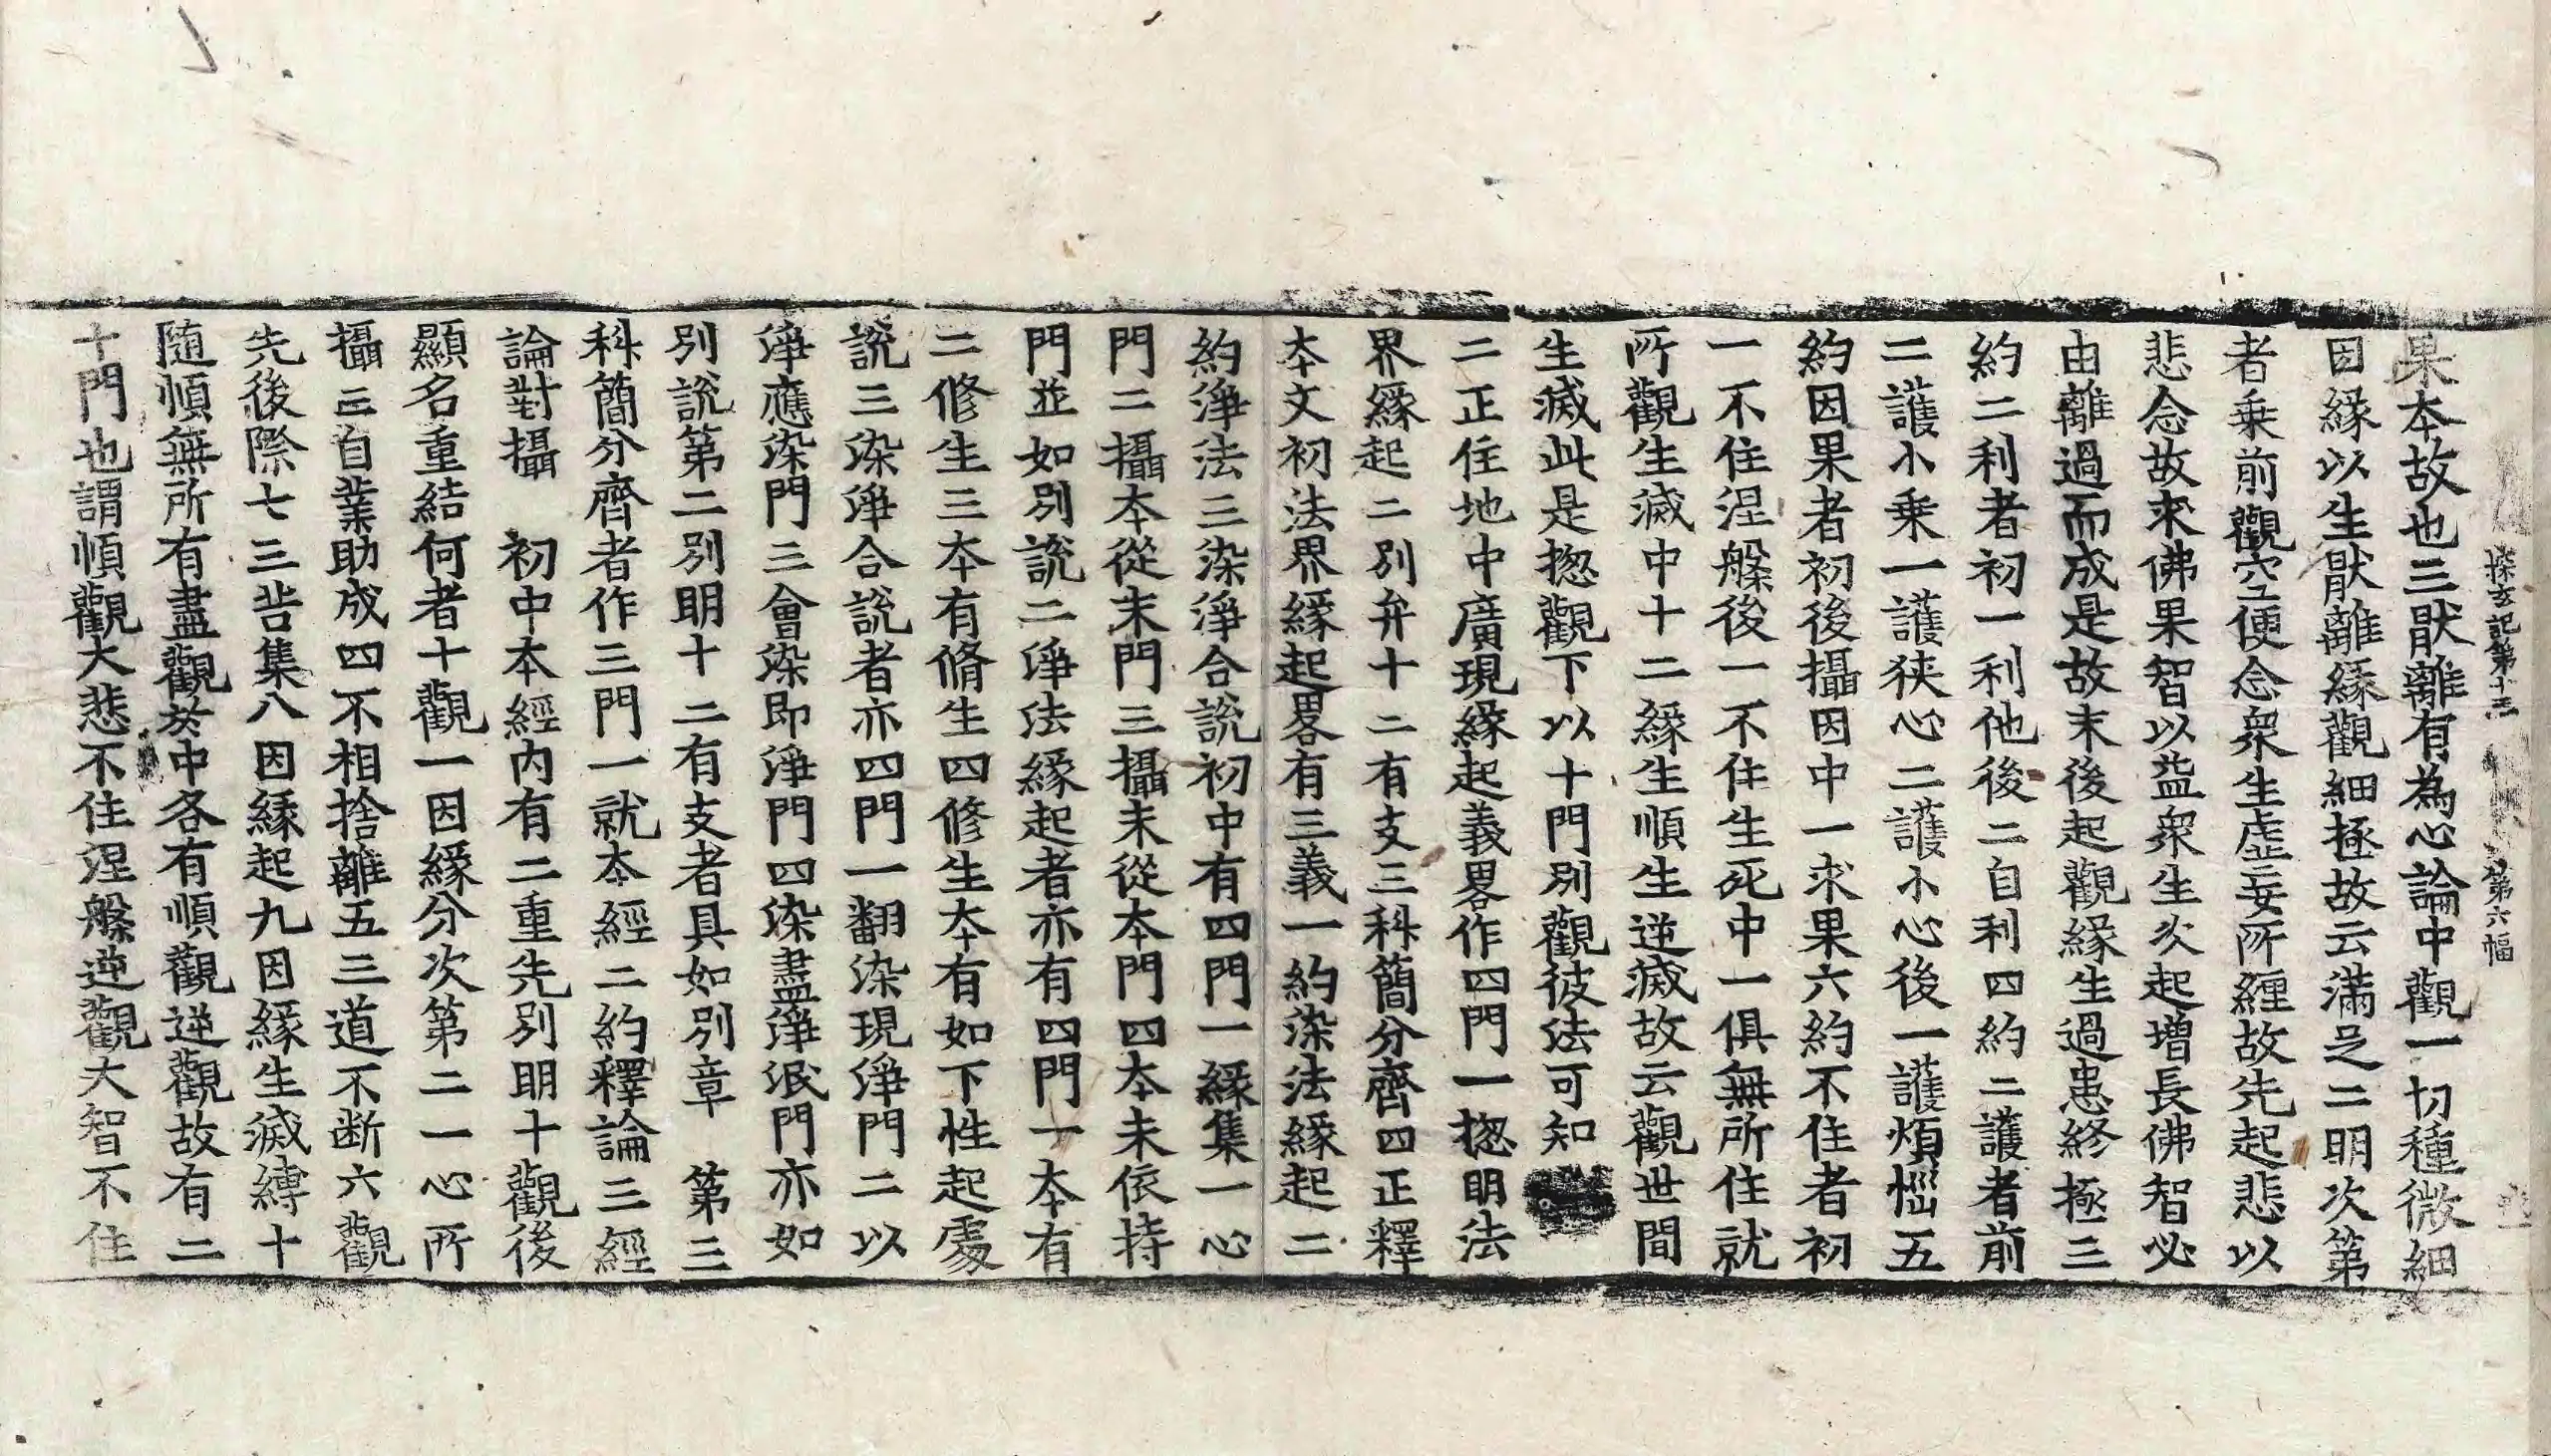 探玄記第十三 第六幅
果本故也三猒離有為心論中觀一切種微細
因緣以生猒離緣觀細極故云滿足二明次第
者乗前觀空便念衆生虛妄所纏故先起悲以
悲念故求佛果智以益衆生次起增長佛智必
由離過而成是故末後起觀緣生過患終極三
約二利者初一利他後二自利四約二護者前
二護小乗一護狹心二護小心後一護煩惱五
約因果者初後攝因中一求果六約不住者初
一不住涅槃後一不住生死中一俱無所住就
所觀生滅中十二緣生順生逆滅故云觀世間
生滅此是揔觀下以十門別觀彼法可知
二正住地中廣現緣起義畧作四門一揔明法
界緣起二別弁十二有支三科簡分齊四正釋
本文初法界緣起畧有三義一約染法緣起二
約淨法三染淨合說初中有四門一緣集一心
門二攝本從末門三攝末從本門四本末依持
門並如別說二淨法緣起者亦有四門一本有
二修生三本有脩生四修生本有如下性起處
說三染淨合說者亦四門一翻染現淨門二以
淨應染門三會染即淨門四染盡淨泯門亦如
別說第二別明十二有支者具如別章 第三
科簡分齊者作三門一就本經二約釋論三經
論對攝 初中本經內有二重先別明十觀後
顯名重結何者十觀一因緣分次第二一心所
攝三自業助成四不相捨離五三道不断六觀
先後際七三苦集八因緣起九因緣生滅縛十
随順無所有盡觀於中各有順觀逆觀故有二
十門也謂順觀大悲不住涅槃逆觀大智不住